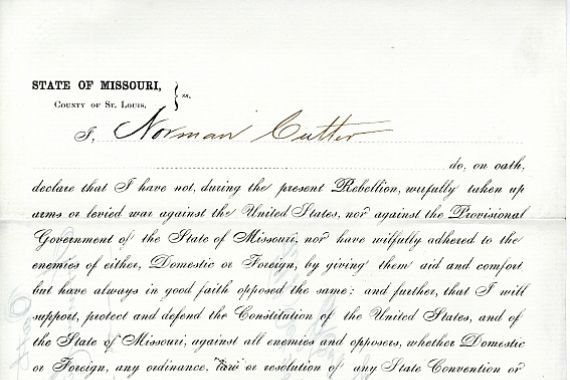 STATE OF MISSOURI,
COUNTY OF ST. LOUIS, } ss.
I, Norman Cutter
do, on oath,
declare that I have not, during the present Rebellion, wilfully taken up
arms or levied war against the United States, nor against the Provisional
Government of the State of Missouri, nor have wilfully adhered to the
enemies of either, Domestic or Foreign, by giving them aid and comfort
but have always in good faith opposed the same; and further, that I will
support, protect and defend the Constitution of the United States, and of
the State of Missouri, against all enemies and opposers, whether Domestic
or Foreign, any ordinance, law or resolution of any State Convention or